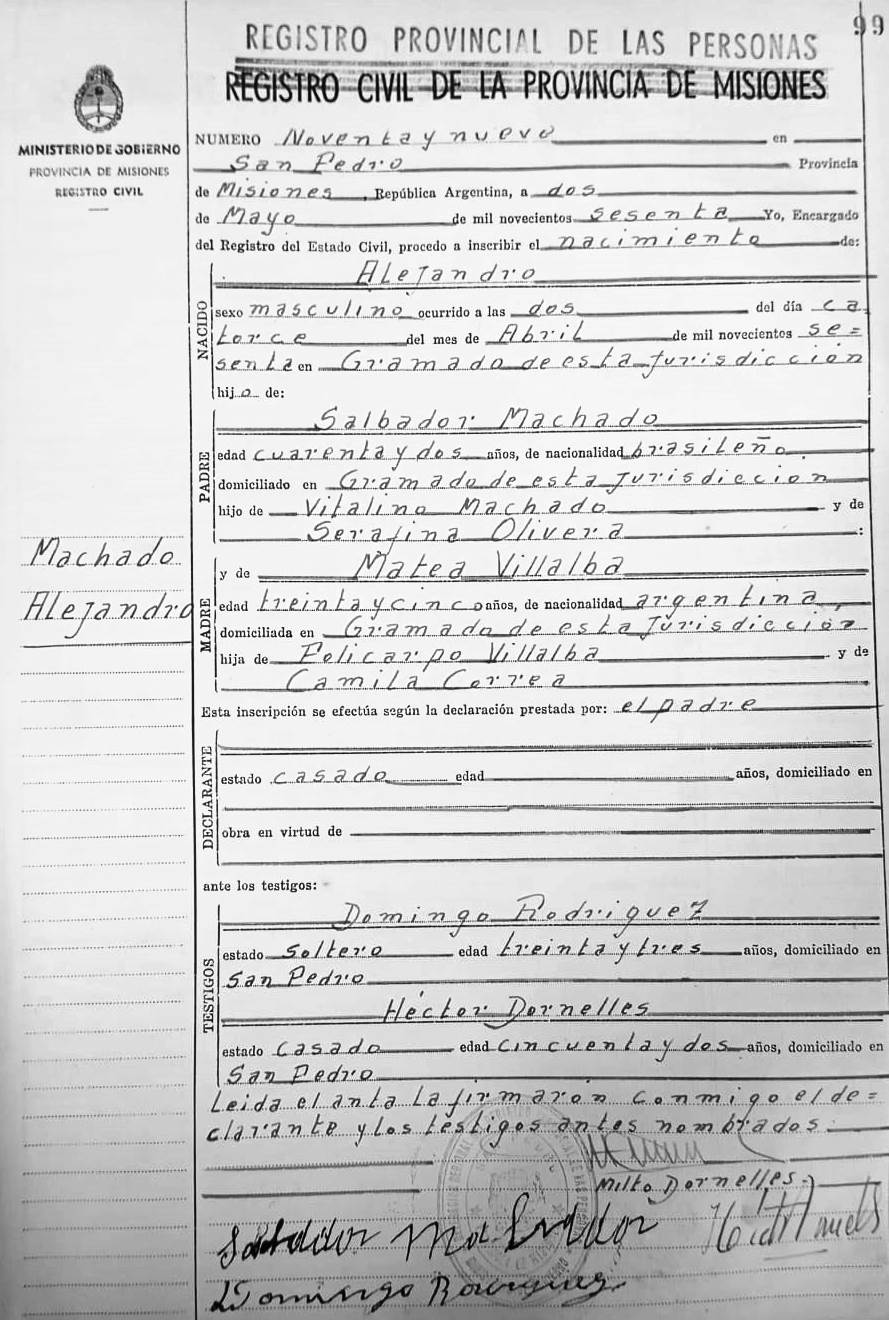 99
REGISTRO PROVINCIAL DE LAS PERSONAS
REGISTRO CIVIL DE LA PROVINCIA DE MISIONES
MINISTERIO DE GOBIERNO
PROVINCIA DE MISIONES
REGISTRO CIVIL
NUMERO Noventa y nueve en
San Pedro Provincia
de Misiones, República Argentina, a dos
de Mayo de mil novecientos sesenta Yo, Encargado
del Registro del Estado Civil, procedo a inscribir el nacimiento de:
NACIDO
Alejandro
sexo masculino ocurrido a las dos del día ca
torce del mes de Abril de mil novecientos se=
senta en Gramado de esta Jurisdicción
hijo de:
PADRE
Salbador Machado
edad cuarenta y dos años, de nacionalidad brasileño.
domiciliado en Gramado de esta Jurisdiccion
hijo de Vitalino Machado y de
Serafina Olivera :
Machado
Alejandro
MADRE
y de Matea Villalba
edad treinta y cinco años, de nacionalidad argentina,
domiciliada en Gramado de esta Jurisdicción
hija de Policarpo Villalba y de
Camila Correa
Esta inscripción se efectúa según la declaración prestada por: el padre
DECLARANTE
estado casado edad años, domiciliado en
obra en virtud de
ante los testigos:
TESTIGOS
Domingo Rodriguez
estado Soltero edad treinta y tres años, domiciliado en
San Pedro
Héctor Dornelles
estado Casado edad cincuenta y dos años, domiciliado en
San Pedro
Leida el anta la firmaron conmigo el de=
clarante y los testigos antes nombrados.
Milto Dornelles
Domingo Rodriguez